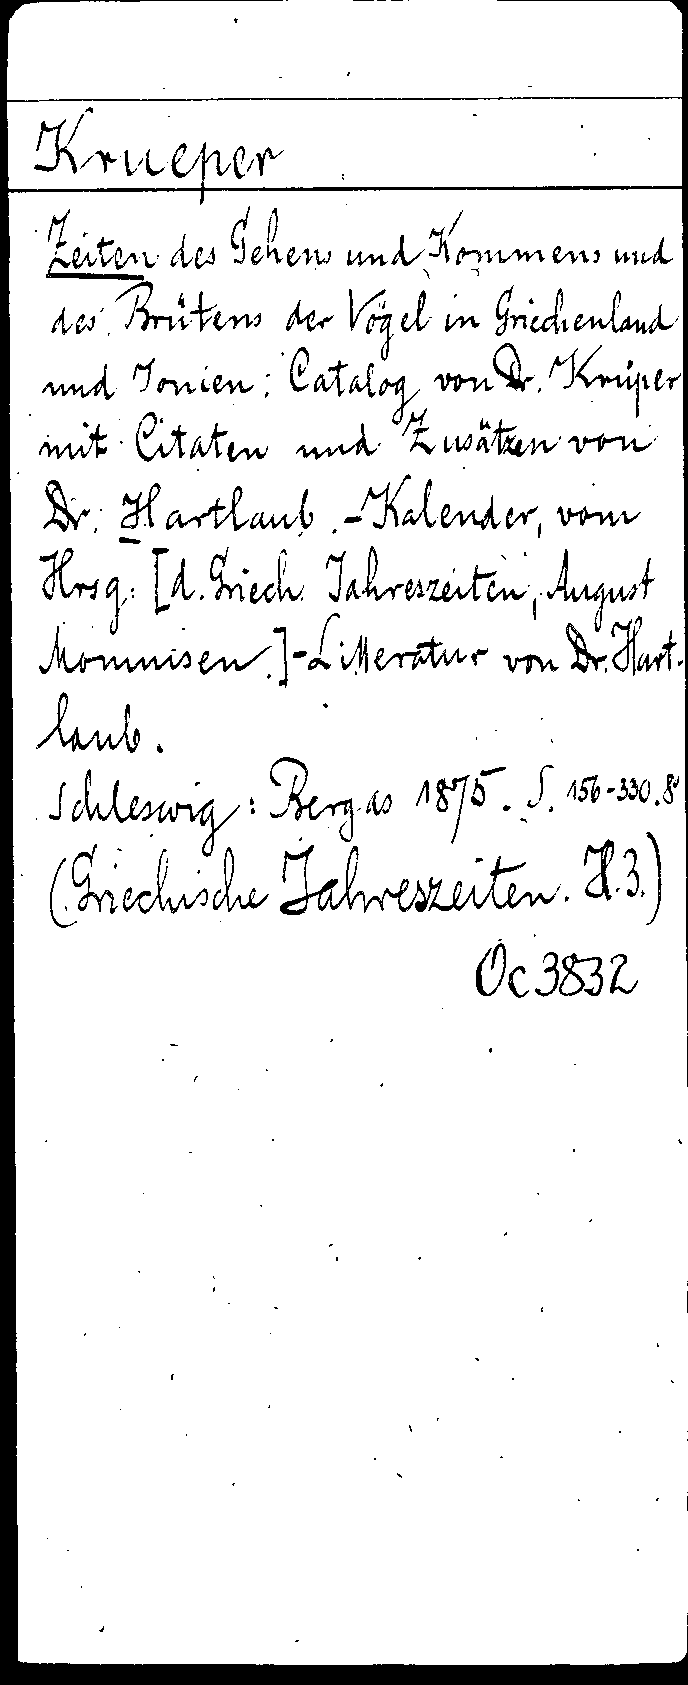 Krueper
Zeiten des Gehens und Kommens und
des Brütens der Vögel in Griechenland
und Ionien: Catalog von Dr. Krüper
mit Citaten und Zusätzen von
Dr. Hartlaub. - Kalender, vom
Hrsg. [d. Griech. Jahreszeiten, August
Mommsen.] - Litteratur von Dr. Hart-
laub.
Schleswig: Bergas 1875. S. 156-330. 8°
(Griechische Jahreszeiten. H. 3.)
Oc 3832